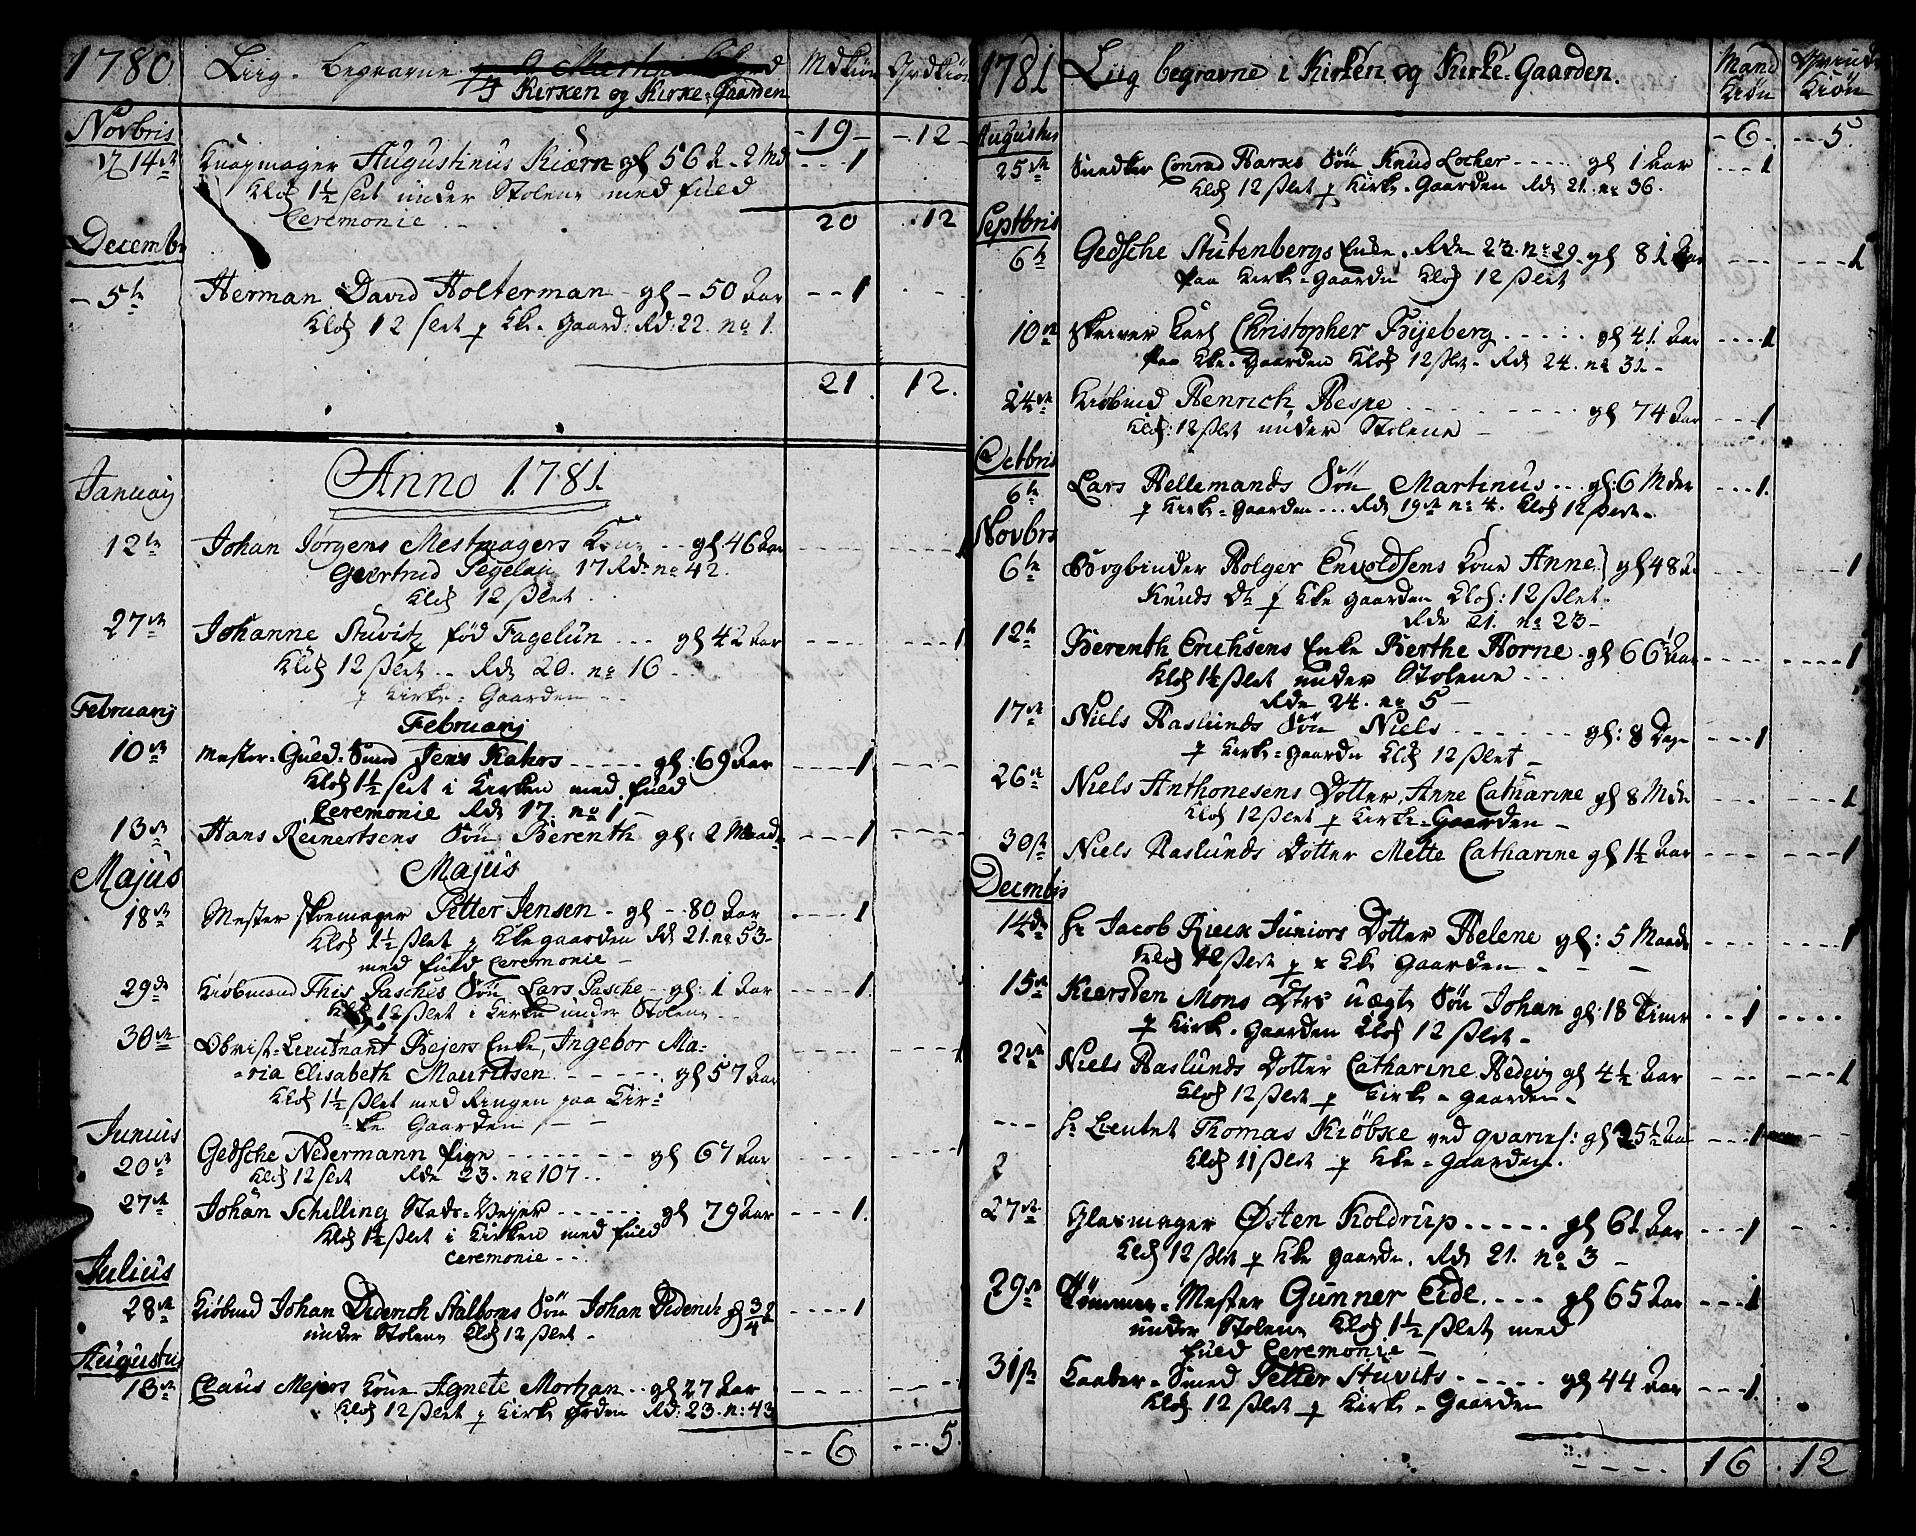 1780 Liig begravne Mdkiön Qvdkiön
I Kirken og Kirke-Gaarden
Novbris -19- -12-
14de Knapmager Augustinus Kiærn gl 56 2 Md ---1
Klok 1½ slet under Stolene med fuld
Ceremonie 20 12
Decembr
5te Herman David Holterman gl 50 Aar --1
Klok 12 slet p Kke-Gaard: Rd: 22. no 1.
21. 12.
Anno 1781.
Januarij
12te Johan Jörgens Mestmagers Kone -- gl 46 Aar 1
Geertrud Segelau 17 Rd: no 42.
Klok 12 slet
27de Johanne Stuvitz föd Fagelun --- gl 42 Aar 1
Klok 12 slet -- Rd: 20. no 16
p Kirke-Gaarden
Februarij
Februarij
10de Mester Guld-Smed Jens Kahrs ----- gl: 69 Aar ---1
Klok 1½ slet i Kirken med fuld
Ceremonie Rd: 17. no 1-
13de Hans Reinertsens Sön Berenth gl: 2 Maand ---1
Majus
Majus
18de Mester Skoemager Petter Jensen - gl -- 80 Aar ----1
Klok 1½ slet p Kke gaarden Rd: 21. no 53-
med fuld Ceremonie -
29de Kiöbmand This Paschis Sön Lars Pasche - gl: 1 Aar ---1
Klok 12 slet i Kirke under Stolene --
30te Obrist-Lieutnant Bejers Enke, Ingebor Ma-
-ria Elisabeth Mauritsen ------ gl 57 Aar 1
Klok 1½ slet med Ringen paa Kir-
-ke Gaarden - -
Junius
20de Gedsche Nedermann pige ------ gl 67 Aar 1
Klok 12 slet Rde 23. no 107 --
27de Johan Schilling Stads-Vejer ------ gl 79 Aar ---1.
Klok 1½ slet i Kirken med fuld
Ceremonie ---
Julius
28de Kiöbmd Johan Diderich Stalboms Sön Johan Diderich gl ¾ A ----1
under Stolene Klok 12 slet -
Augustus
13de Claus Mejers Kone Agnete Mortzan -- gl 27 Aar 1
Klok 12 slet p Kirke garden Rd: 23. n: 43
-- 6 --- 5.
1781 Liig begravne i Kirken og Kirke-Gaarden. Mand Kiön Qvinde Kiön
Augustus - 6. --- 5.
25de Snedker Conrad Harms Sön Knud Locher ----- gl 1 Aar ---1
Klok 12 slet p Kirke-Gaarden Rde 21. no 36.
Septbris
6te Gedsche Stutenbergs Enke. Rde 23. no 29. gl 81 Aar ----1
paa Kirke-Gaarden Klok 12 slet
10de Skriver Karl Christopher Fryeberg ----- gl 41. Aar ----1
paa Kke-Gaarden Klok 12 slet- Rde 24. no 31-
24de Kiöbmd Henrich Hespe --------- gl 74 Aar ---1
Klok: 12 slet under Stolene -
Octbris
6te Lars Hellemands Sön Martinus --- gl: 6 Mder ---1.
p Kirke-Gaarden --- Rde 19de no 4. Klok 12 slet-
Novbrs
6te Bogbinder Holger Envoldsens Kone Anne gl 48 A ----1
Knuds Dtr p Kke gaarden Klok: 12 slet-
Rde 21. no 23-
12te Berenth Erichsens Enke Berthe Horne gl 66½ Aar ----1
Klok 1½ slet under Stolene ---
Rde 24. no 5 -
17de Niels Haslunds Sön Niels ------ gl: 8 Dage ---1
p Kirke-Gaarden Klok 12 slet -
26de Niels Anthonesens Dotter Anne Catharine gl 8 Mdr ----1
Klok 12 slet p Kirke-Gaarden -
30te Niels Haslunds Dotter Mette Catharine gl 1½ Aar ----1
Decmbis
14de Hr Jacob Rieck Juniors Dotter Helene gl: 5 Maader ----1
Klok 12 slet p Kke Gaarden - - -
15de Kiersten Mons Dtrs uægte Sön Johan gl: 18 Timer ---1
p Kirke-Gaarden Klok 12 slet -
22de Niels Haslunds Dotter Catharine Hedevig gl 4½ Aar ----1
Klok 12 slet p Kirke-Gaarden -
--- Hr Lieutet Thomas Kiöbke ved qvarnis: gl 25½ Aar ---1
Klok 11 slet p Kke-Gaarden.
27de Glasmager Østen Koldrup ----- gl 61 Aar ---1
Klok 12 slet p Kke gaarde. Rde 21. no 3 -
29de Tömmer-Mester Gunner Eide ---- gl 65 Aar ---1
under Stolene Klok 1½ slet med
fuld Ceremonie -
31te Kaaber-Smed Petter Stuvits ----- gl 44 Aar ---1
Klok 12 slet p Kirke-Gaarden
16 12